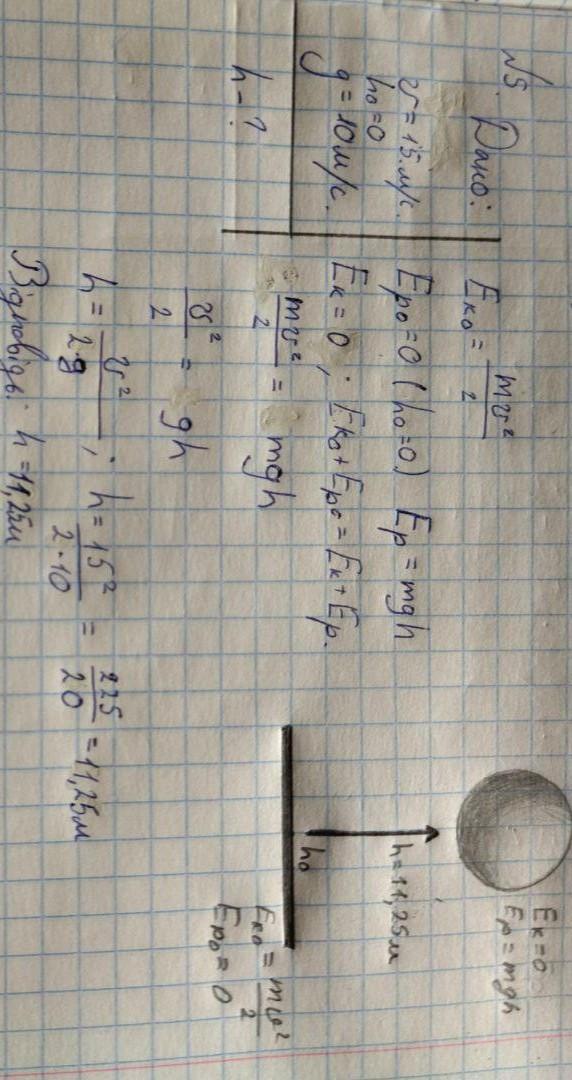 №5. Дано:
v = 15 м/с.
h₀ = 0
g = 10 м/с.
h – ?
Eк₀ = mv²/2
Eр₀ = 0 (h₀ = 0) Eр = mgh
Eк = 0 ; Eк₀ + Eр₀ = Eк + Eр.
mv²/2 = mgh
v²/2 = gh
h = v²/2·g ; h = 15²/2·10 = 225/20 = 11,25м
Відповідь: h = 11,25м
Eк = 0
Eр = mgh
h = 11,25м
h₀
Eк₀ = mv²/2
Eр₀ = 0